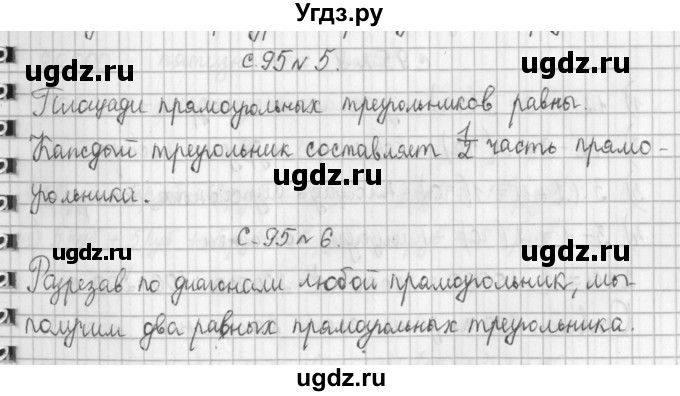 Угдз.ру
с. 95 N 5.
ugdz.ru ugdz.ru
Площади прямоугольных треугольников равны.
ugdz.ru
Каждый треугольник составляет 1/2 часть прямо-
ugdz.ru
угольника.
с. 95 N 6.
ugdz.ru ugdz.ru
Разрезав по диагонали любой прямоугольник, мы
ugdz.ru
получим два равных прямоугольных треугольника.
ugdz.ru